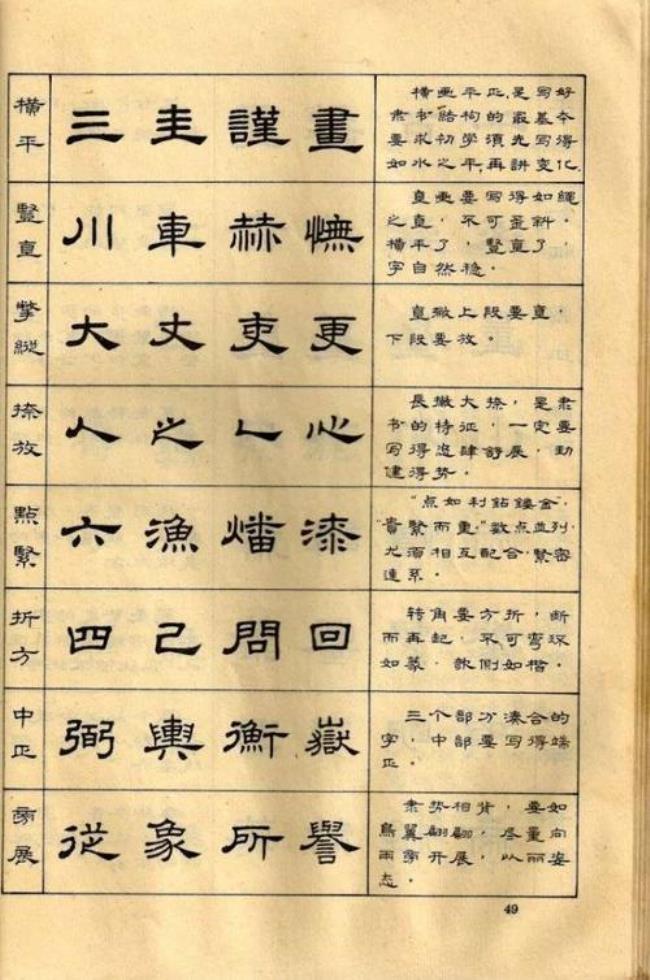 橫平
三 圭 謹 畫
横画平正,是写好
隶书结构的最基本
要求初学須先写得
如水之平,再讲变化.
豎直
川 車 赫 憮
直画要写得如繩
之直,不可歪斜。
橫平了,豎直了,
字自然稳。
撆縱
大 丈 吏 更
直撇上段要直,
下段要放。
捺放
人 之 心
長撇大捺,是隶
书的特征,一定要
写得肆舒展,劲
健得势。
點緊
六 漁 燔 漆
“点如利鉆鏤金”,
“貴緊而重”數点並列,
尤須相互配合,緊密
連系。
折方
四 己 問 回
转角要方折,断
而再起,不可弯环
如篆,欹側如楷。
中正
弼 輿 衡 嶽
三个部分湊合的
字,中部要写得端
正。
旁展
從 象 所 譽
隶势相背,要如
鳥翼翩翩,尽量向
两旁开展,以丽姿
态。
49